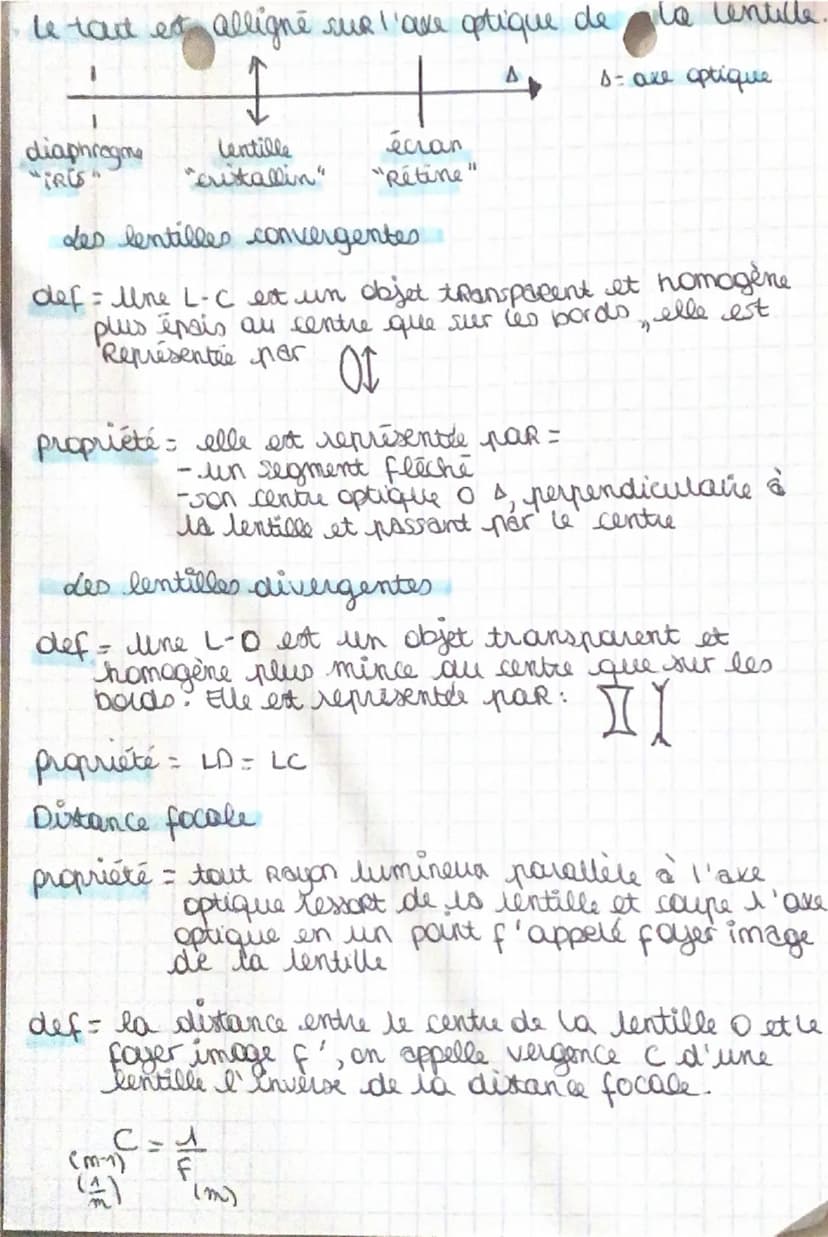 Le tout est alligné sur l'axe optique de la lentille.
Δ Δ= axe optique
diaphragme lentille écran
"iRis" "cristallin" "Rétine"
Les lentilles convergentes
def = Une L-C est un objet tRanspaRent et homogène
plus épais au centre que sur les bords, elle est
Représentée par
propriété = elle est représentée paR =
- un segment fléché
- son centre optique O Δ, perpendiculaire à
la lentille et passant par le centre
Les lentilles divergentes
def = Une L-D est un objet transparent et
homogène plus mince au centre que sur les
bords. Elle est représentée paR :
propriété = LD = LC
Distance focale
propriété = tout Rayon lumineux parallèle à l'axe
optique ressort de la lentille et coupe l'axe
optique en un point f' appelé foyer image
de la lentille
def = la distance entre le centre de la lentille O et le
foyer image f', on appelle vergence C d'une
lentille l'inverse de la distance focale.
C = 1/f
(m-1)
(1/m) (m)